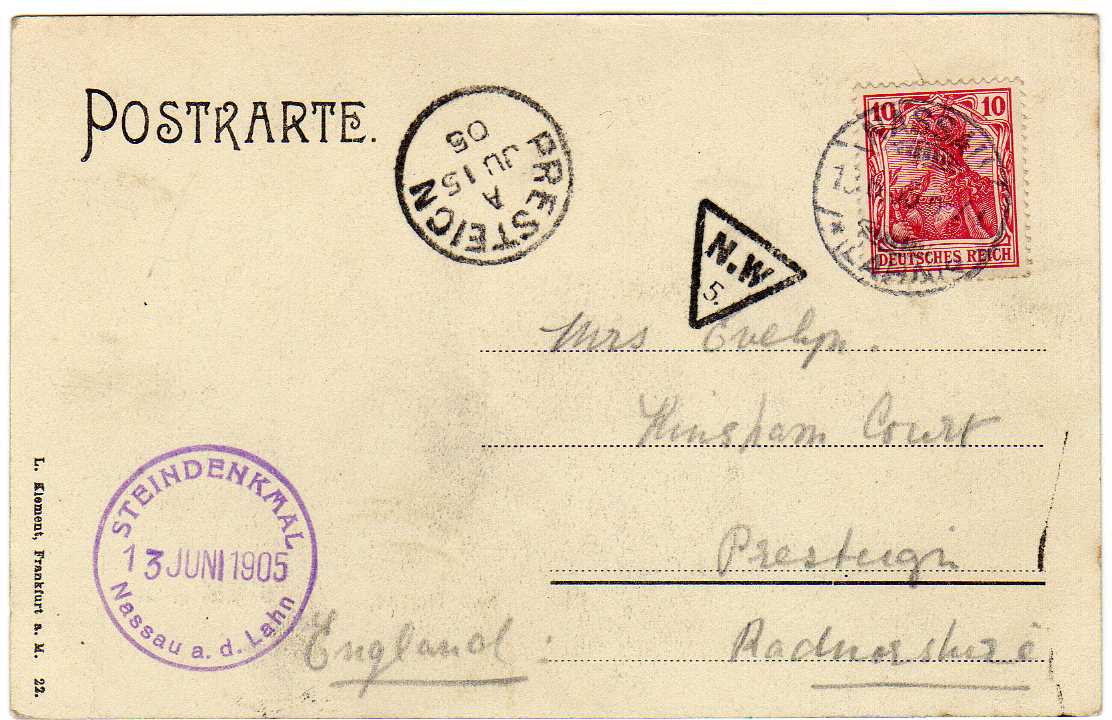 POSTKARTE.
PRESTEIGN
A
JU 15
05
10 10
DEUTSCHES REICH
NASSAU
*(LAHN)
N.W
5.
Mrs Evelyn.
Kinsham Court
Presteign
England : Radnorshire
STEINDENKMAL
13 JUNI 1905
Nassau a. d. Lahn
L. Klement, Frankfurt a. M. 22.